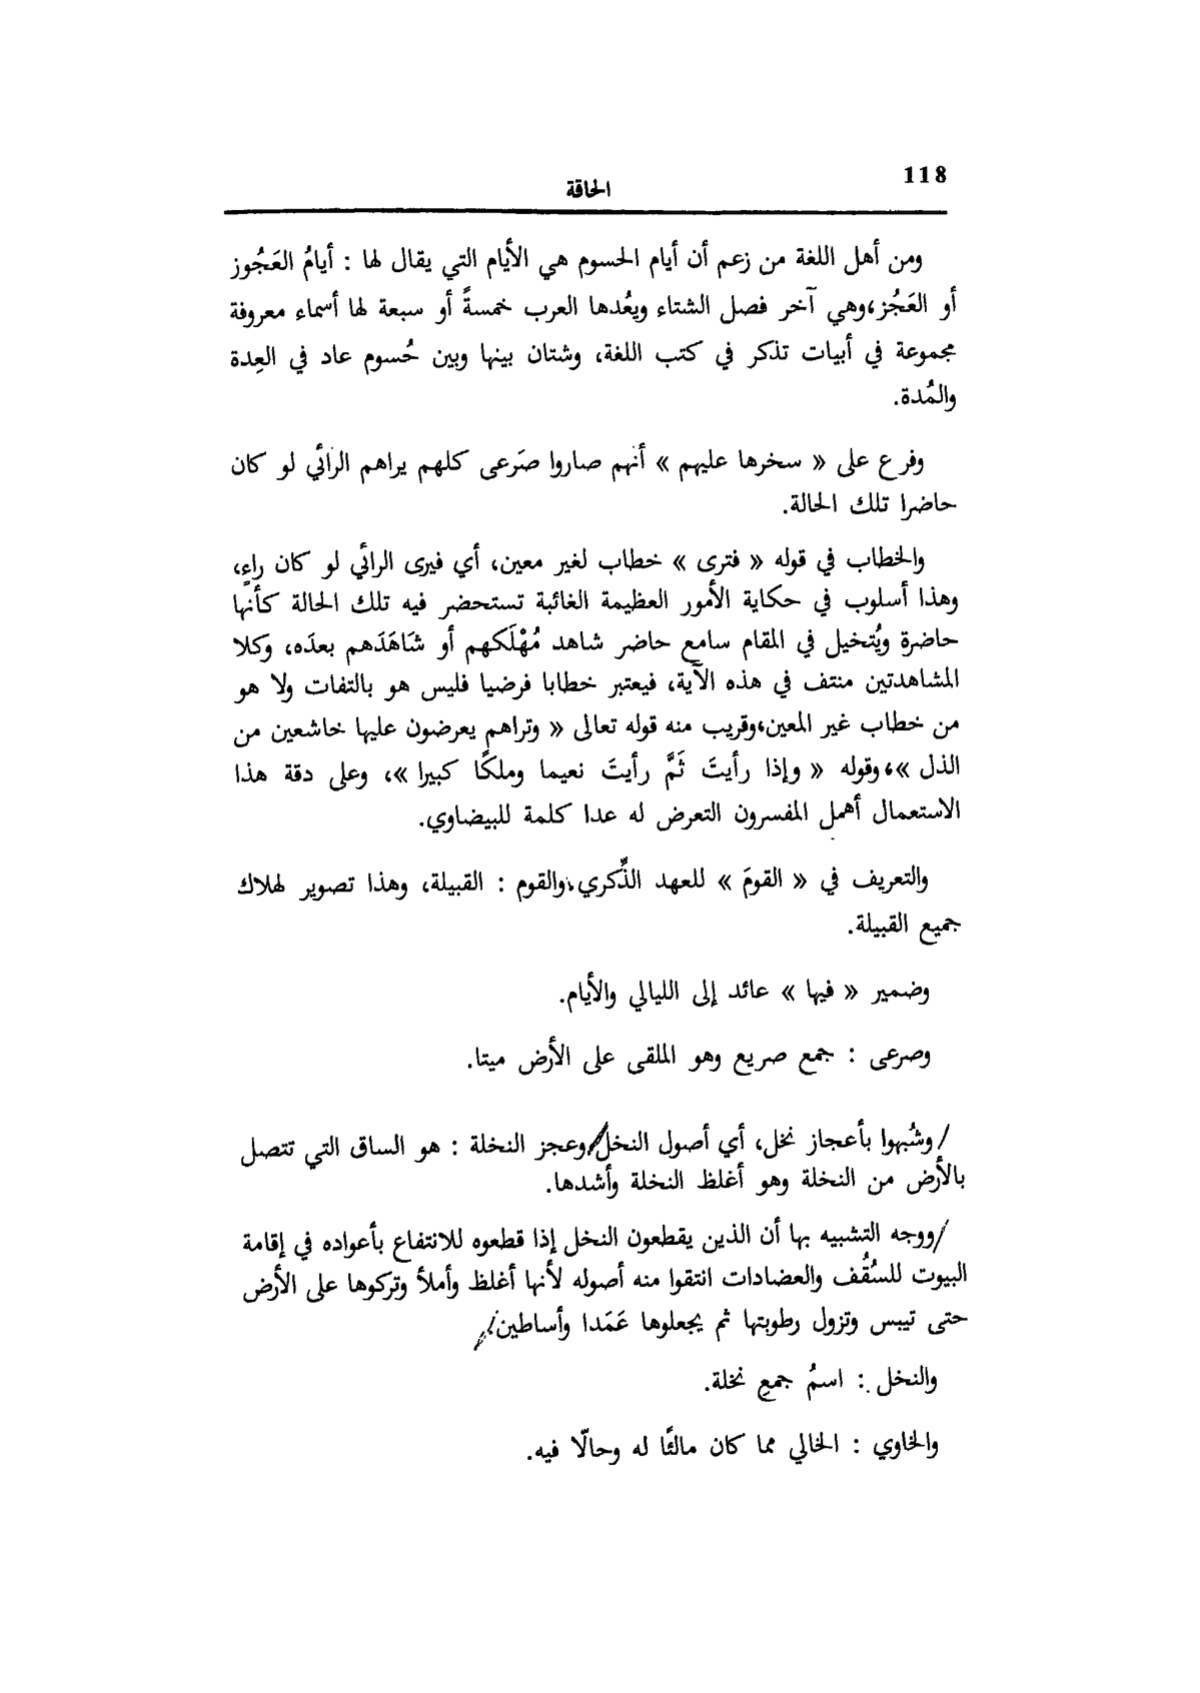 118
الحاقة
ومن أهل اللغة من زعم أن أيام الحسوم هي الأيام التي يقال لها : أيامُ العَجُوز
أو العَجُز،وهي آخر فصل الشتاء ويعُدها العرب خمسةً أو سبعة لها أسماء معروفة
مجموعة في أبيات تذكر في كتب اللغة، وشتان بينها وبين حُسوم عاد في العِدة
والمُدة.
وفرع على « سخرها عليهم » أنهم صاروا صَرعى كلهم يراهم الرائي لو كان
حاضرا تلك الحالة.
والخطاب في قوله « فترى » خطاب لغير معين، أي فيرى الرائي لو كان راءٍ،
وهذا أسلوب في حكاية الأمور العظيمة الغائبة تستحضر فيه تلك الحالة كأنها
حاضرة ويُتخيل في المقام سامع حاضر شاهد مُهْلَكهم أو شَاهَدَهم بعدَه، وكلا
المشاهدتين منتف في هذه الآية، فيعتبر خطابا فرضيا فليس هو بالتفات ولا هو
من خطاب غير المعين،وقريب منه قوله تعالى « وتراهم يعرضون عليها خاشعين من
الذل »، وقوله « وإذا رأيتَ ثَمَّ رأيتَ نعيما وملكًا كبيرا »، وعلى دقة هذا
الاستعمال أهمل المفسرون التعرض له عدا كلمة للبيضاوي.
والتعريف في « القومَ » للعهد الذِّكري،والقوم : القبيلة، وهذا تصوير لهلاك
جميع القبيلة.
وضمير « فيها » عائد إلى الليالي والأيام.
وصرعى : جمع صريع وهو الملقى على الأرض ميتا.
/ وشُبهوا بأعجاز نخل، أي أصول النخل/وعجز النخلة : هو الساق التي تتصل
بالأرض من النخلة وهو أغلظ النخلة وأشدها.
/ووجه التشبيه بها أن الذين يقطعون النخل إذا قطعوه للانتفاع بأعواده في إقامة
البيوت للسُقُف والعضادات انتقوا منه أصوله لأنها أغلظ وأملأ وتركوها على الأرض
حتى تيبس وتزول رطوبتها ثم يجعلوها عَمَدا وأساطين/
والنخل : اسمُ جمعِ نخلة.
والخاوي : الخالي مما كان مالئًا له وحالّا فيه.